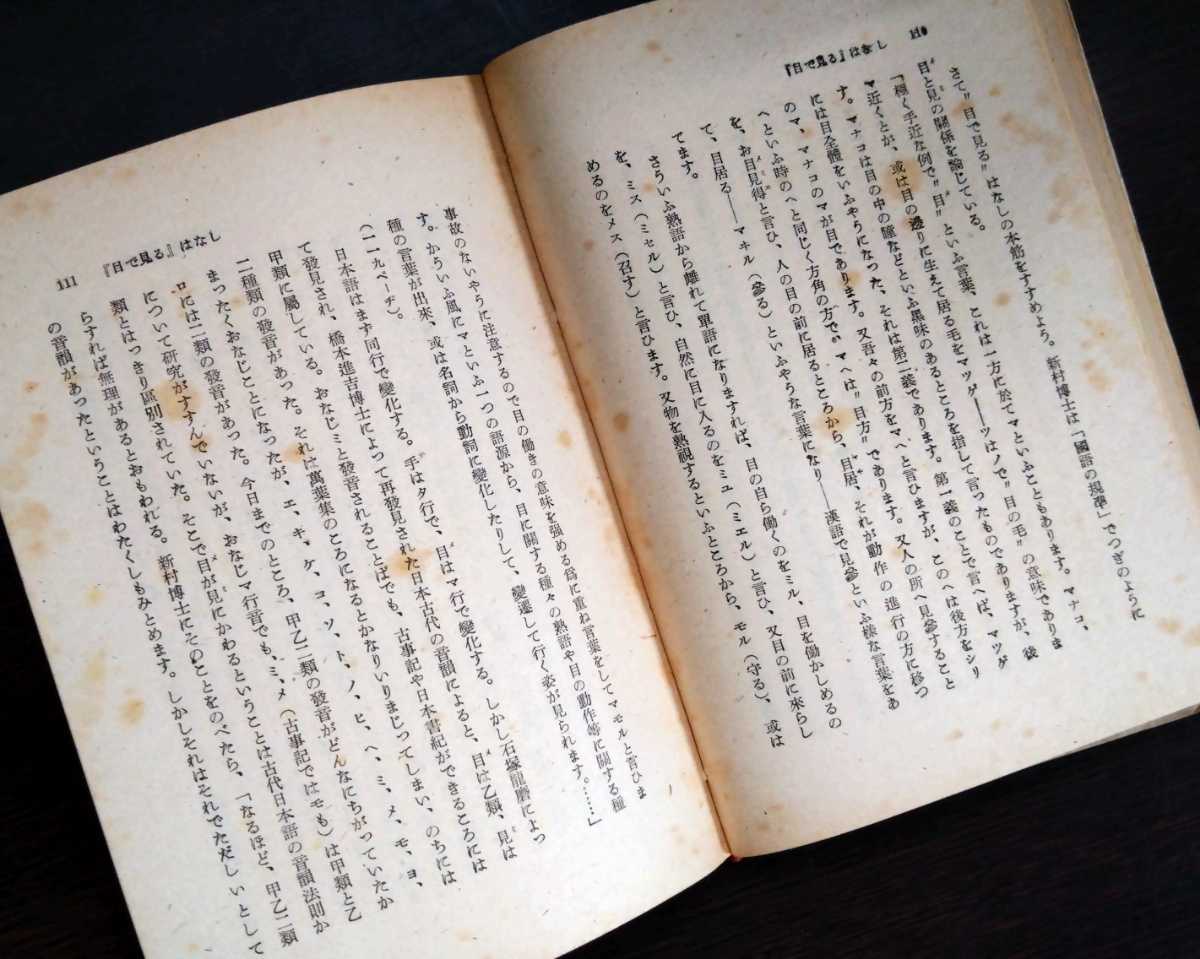 110
『目で見る』はなし
さて〃目で見る〃はなしの本筋をすすめよう。新村博士は「國語の規準」でつぎのように
目と見の關係を論じている。
「極く手近な例で〃目〃といふ言葉、これは一方に於てマといふこともあります。マナコ、
マ近くとか、或は目の邊りに生えて居る毛をマツゲ――ツはノで〃目の毛〃の意味でありま
す。マナコは目の中の瞳などといふ黑味のあるところを指して言つたものでありますが、後
には目全體をいふやうになつた、それは第二義であります。第一義のことで言へば、マツゲ
のマ、マナコのマが目であります。又吾々の前方をマヘと言ひますが、このへは後方をシリ
ヘといふ時のヘと同じく方角の方で、マヘは〃目方〃であります。又人の所へ見參すること
を、お目見得と言ひ、人の目の前に居るところから、目居、それが動作の進行の方に移つ
て、目居る――マヰル（參る）といふやうな言葉になり――漢語で見參といふ樣な言葉をあ
てます。
さういふ熟語から離れて單語になりますれば、目の自ら働くのをミル、目を働かしめるの
を、ミス（ミセル）と言ひ、自然に目に入るのをミユ（ミエル）と言ひ、又目の前に來らし
めるのをメス（召す）と言ひます。又物を熟視するといふところから、モル（守る）、或は
事故のないやうに注意するので目の働きの意味を強める爲に重ね言葉をしてマモルと言ひま
す。かういふ風にマといふ一つの語源から、目に關する種々の熟語や目の動作等に關する種
種の言葉が出來、或は名詞から動詞に變化したりして、變遷して行く姿が見られます。……」
（一一九ページ）。
日本語はまず同行で變化する。手はタ行で、目はマ行で變化する。しかし石塚龍麿によっ
て發見され、橋本進吉博士によって再發見された日本古代の音韻によると、目は乙類、見は
甲類に屬している。おなじミと發音されることばでも、古事記や日本書紀ができるころには
二種類の發音があった。それは萬葉集のころになるとかなりいりまじってしまい、のちには
まったくおなじことになったが、エ、キ、ケ、コ、ソ、ト、ノ、ヒ、ヘ、ミ、メ、モ、ヨ、
ロには二類の發音があった。今日までのところ、甲乙二類の發音がどんなにちがっていたか
について研究がすすんでいないが、おなじマ行音でも、ミ、メ（古事記ではモも）は甲類と乙
類とはっきり區別されていた。そこで目が見にかわるということは古代日本語の音韻法則か
らすれば無理があるとおもわれる。新村博士にそのことをのべたら、「なるほど、甲乙二類
の音韻があったということはわたくしもみとめます。しかしそれはそれでただしいとして
『目で見る』はなし
111